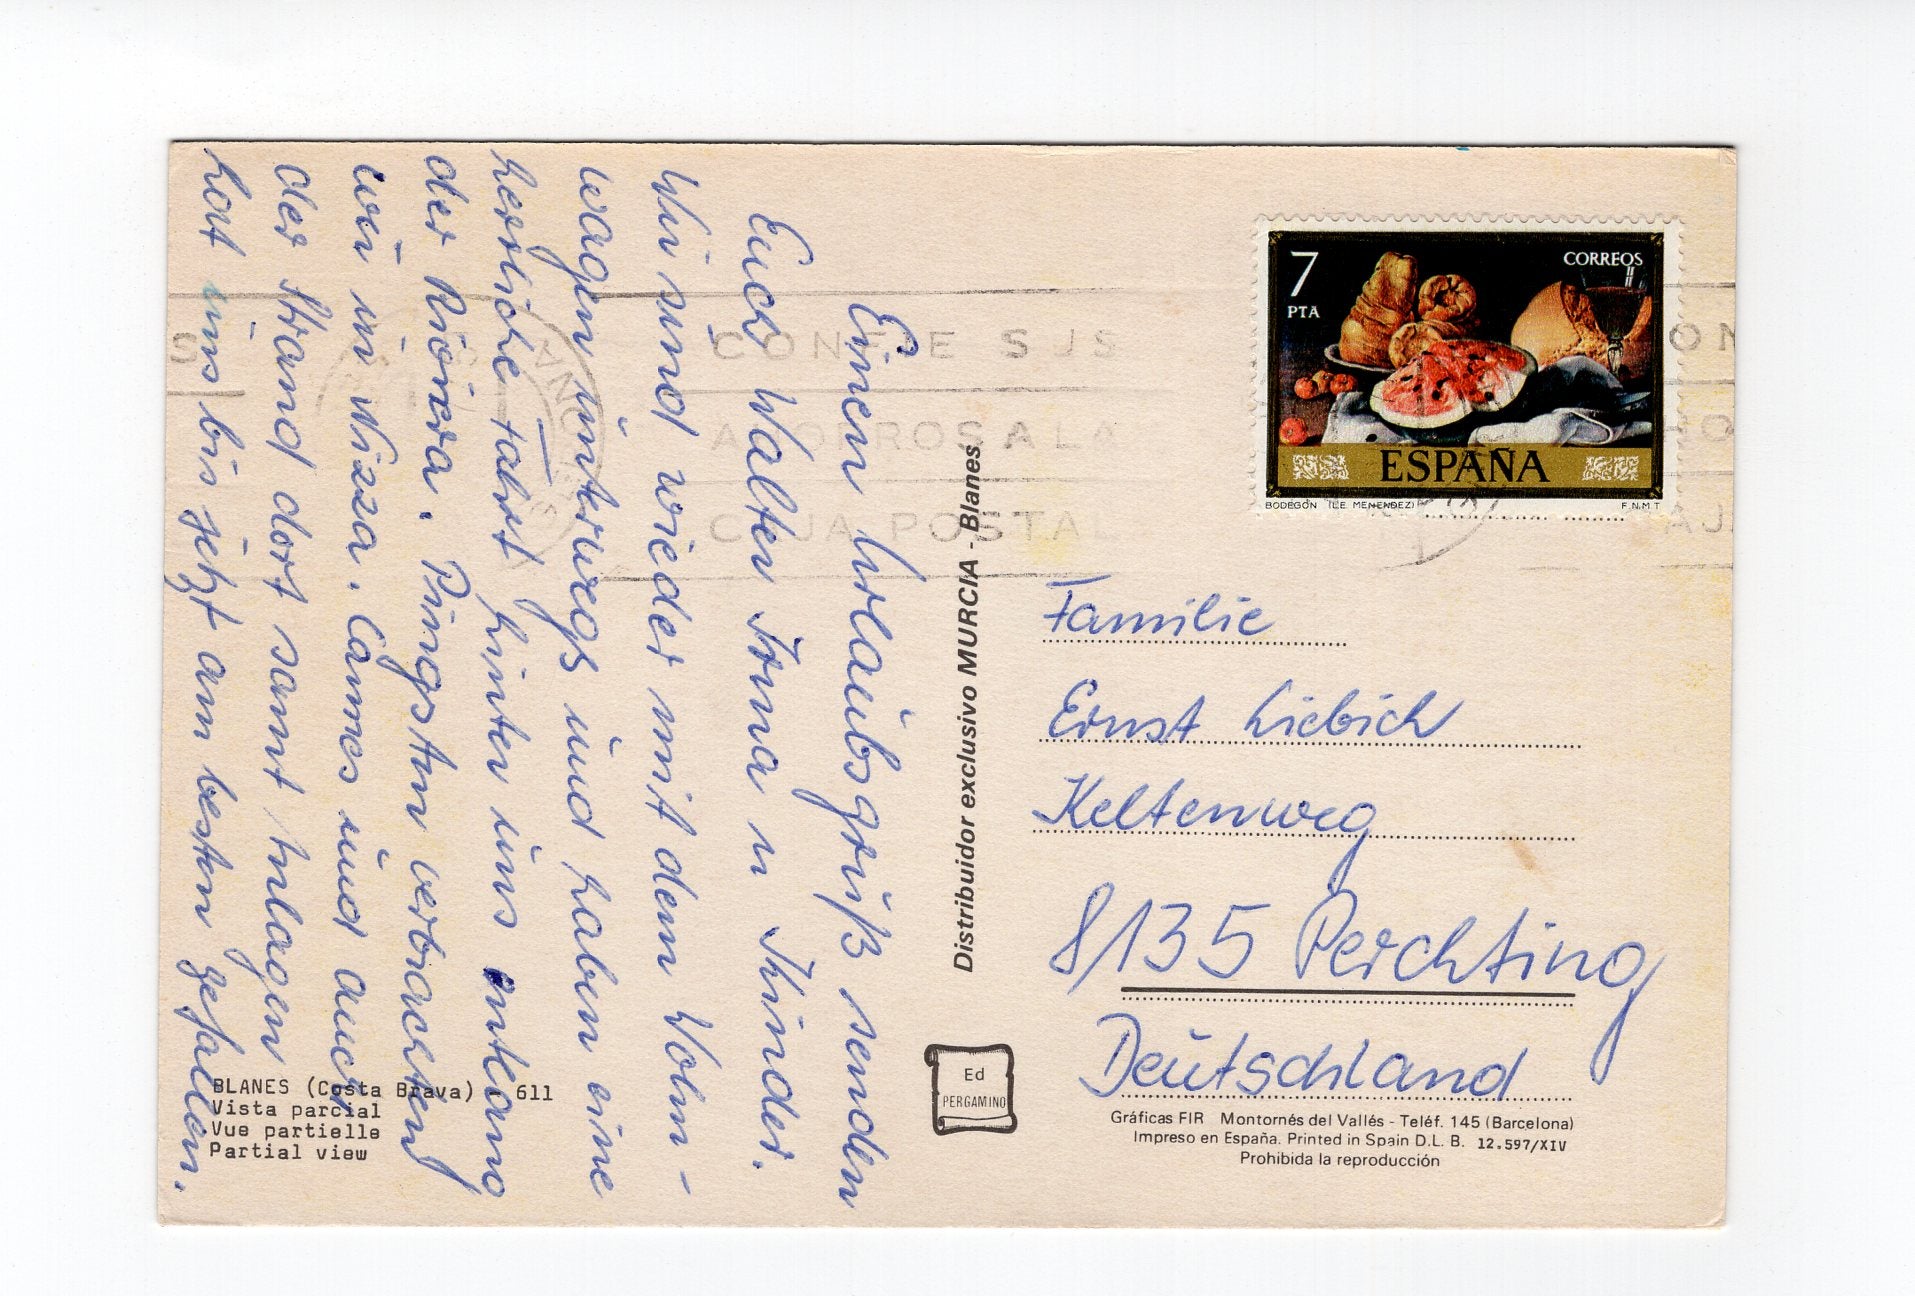 Einen Urlaubsgruß senden
Euch Walter Irma u Kinder.
Wir sind wieder mit dem Wohn-
wagen unterwegs und haben eine
herrliche Fahrt hinter uns entlang
der Riviera. Pingsten verbrachten
wir in Nizza. Cannes und auch
der Strand dort samt Anlagen
hat uns bis jetzt am besten gefallen.
BLANES (Costa Brava) 611
Vista parcial
Vue partielle
Partial view
Distribuidor exclusivo MURCIA - Blanes
Ed
PERGAMINO
CONFIE SUS
AHORROS A LA
CAJA POSTAL
7
PTA
CORREOS
ESPAÑA
BODEGÓN (L.E. MENENDEZ)
F.N.M.T
Familie
Ernst Liebich
Keltenweg
8135 Perchting
Deutschland
Gráficas FIR Montornés del Vallés - Teléf. 145 (Barcelona)
Impreso en España. Printed in Spain D.L. B. 12.597/XIV
Prohibida la reproducción